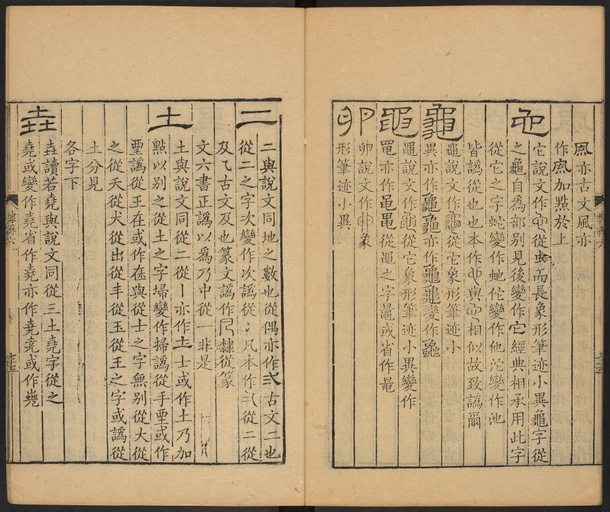 風亦古文風亦
作風加點於上
它
它說文作從虫而長象形筆迹小異龜字從
之龜自為部別見後變作它經典相承用此字
從它之字蛇變作虵佗變作他沱變作池
皆譌從也也本作與相似故致譌爾
龜
龜說文作從它象形筆迹小
異亦作龜亦作變作
黽
黽說文作從它象形筆迹小異變作
黽亦作從黽之字鼂或省作
卵
卵說文作象
形筆迹小異
二
二與說文同地之數也從偶亦作弍古文二也
從二之字次變作次譌從冫凡本作從二從
及乁古文及也篆文譌作隸從篆
文六書正譌以為乃中從一非是
土
土與說文同從二從丨亦作士或作土乃加
點以別之從土之字埽變作掃譌從手垔或作
聖譌從王在或作在與從士之字無別從大從
之從夭從犬從出從丰從玉從王之字或譌從
土分見
各字下
垚
垚讀若堯與說文同從三土堯字從之
堯或變作堯省作尭亦作尭或作